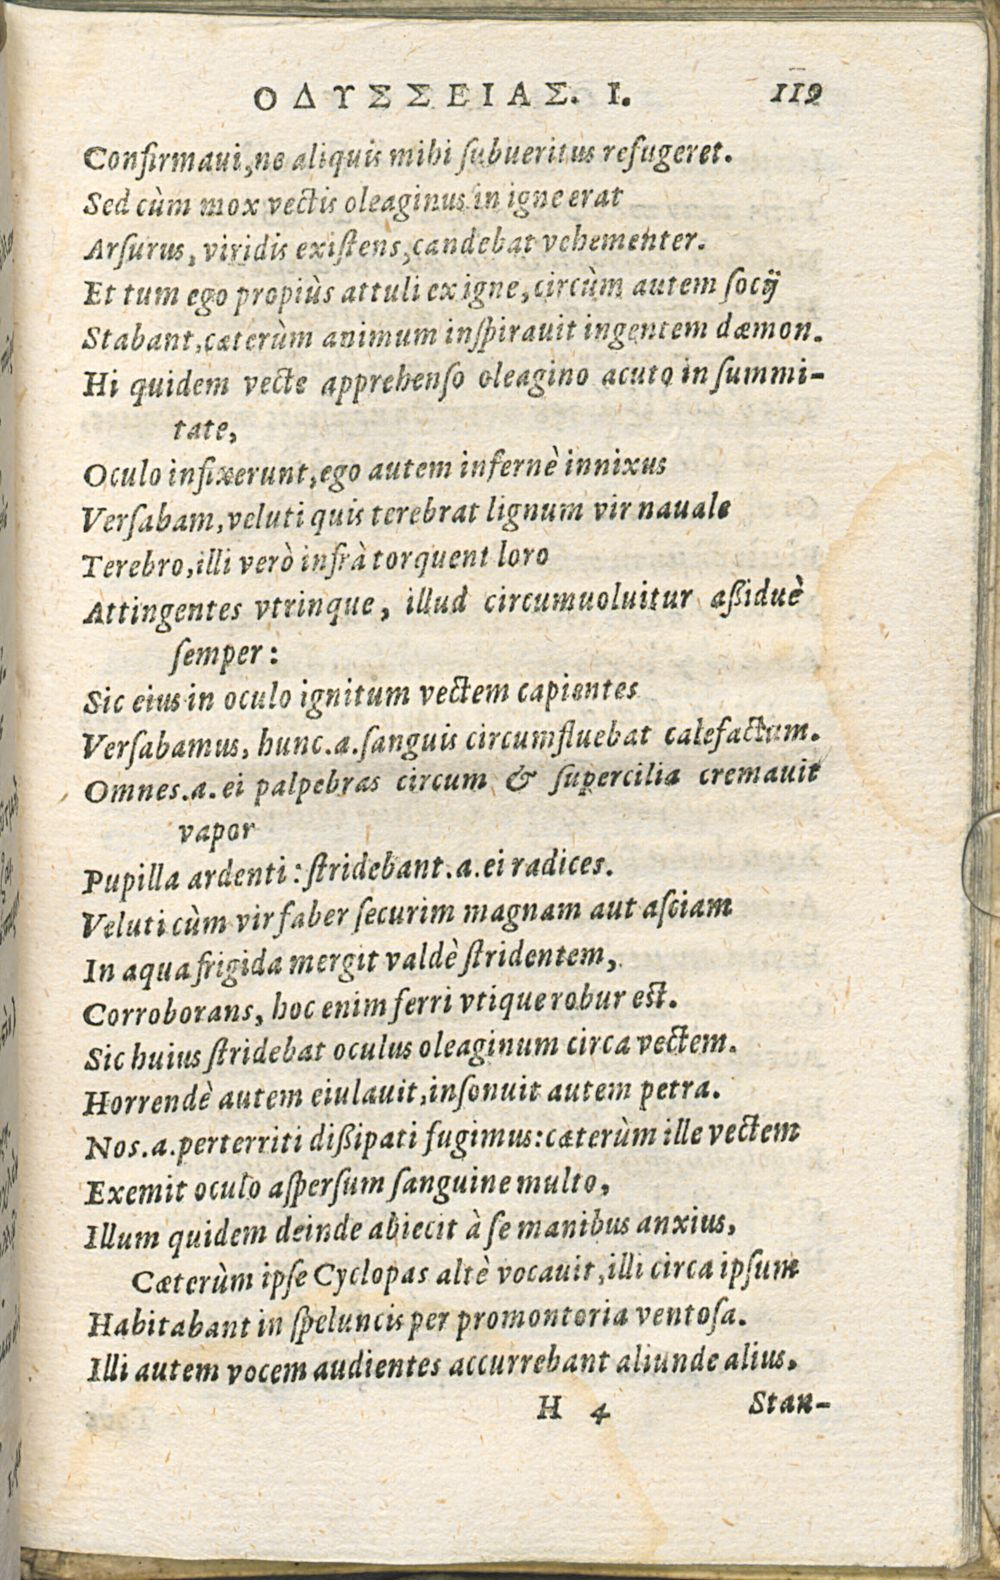 ΟΔΥΣΣΕΙΑΣ. Ι. 119
Confirmaui, ne aliquis mihi ſubueritus refugeret.
Sed cùm mox vectis oleaginus in igne erat
Arſurus, viridis exiſtens, candebat vehementer.
Et tum ego propiùs attuli ex igne, circùm autem ſocij
Stabant, cæterùm animum inſpirauit ingentem dæmon.
Hi quidem vecte apprehenſo oleagino acuto in ſummi-
tate,
Oculo infixerunt, ego autem infernè innixus
Verſabam, veluti quis terebrat lignum vir nauale
Terebro, illi verò infrà torquent loro
Attingentes vtrinque, illud circumuoluitur aßiduè
ſemper:
Sic eius in oculo ignitum vectem capientes
Verſabamus, hunc.a.ſanguis circumfluebat calefactum.
Omnes.a.ei palpebras circum & ſupercilia cremauit
vapor
Pupilla ardenti: ſtridebant.a.ei radices.
Veluti cùm vir faber ſecurim magnam aut aſciam
In aqua frigida mergit valdè ſtridentem,
Corroborans, hoc enim ferri vtique robur est.
Sic huius ſtridebat oculus oleaginum circa vectem.
Horrendè autem eiulauit, inſonuit autem petra.
Nos.a.perterriti dißipati fugimus: cæterùm ille vectem
Exemit oculo aſperſum ſanguine multo,
Illum quidem deinde abiecit à ſe manibus anxius,
Cæterùm ipſe Cyclopas altè vocauit, illi circa ipſum
Habitabant in ſpeluncis per promontoria ventoſa.
Illi autem vocem audientes accurrebant aliunde alius.
H 4 Stan-